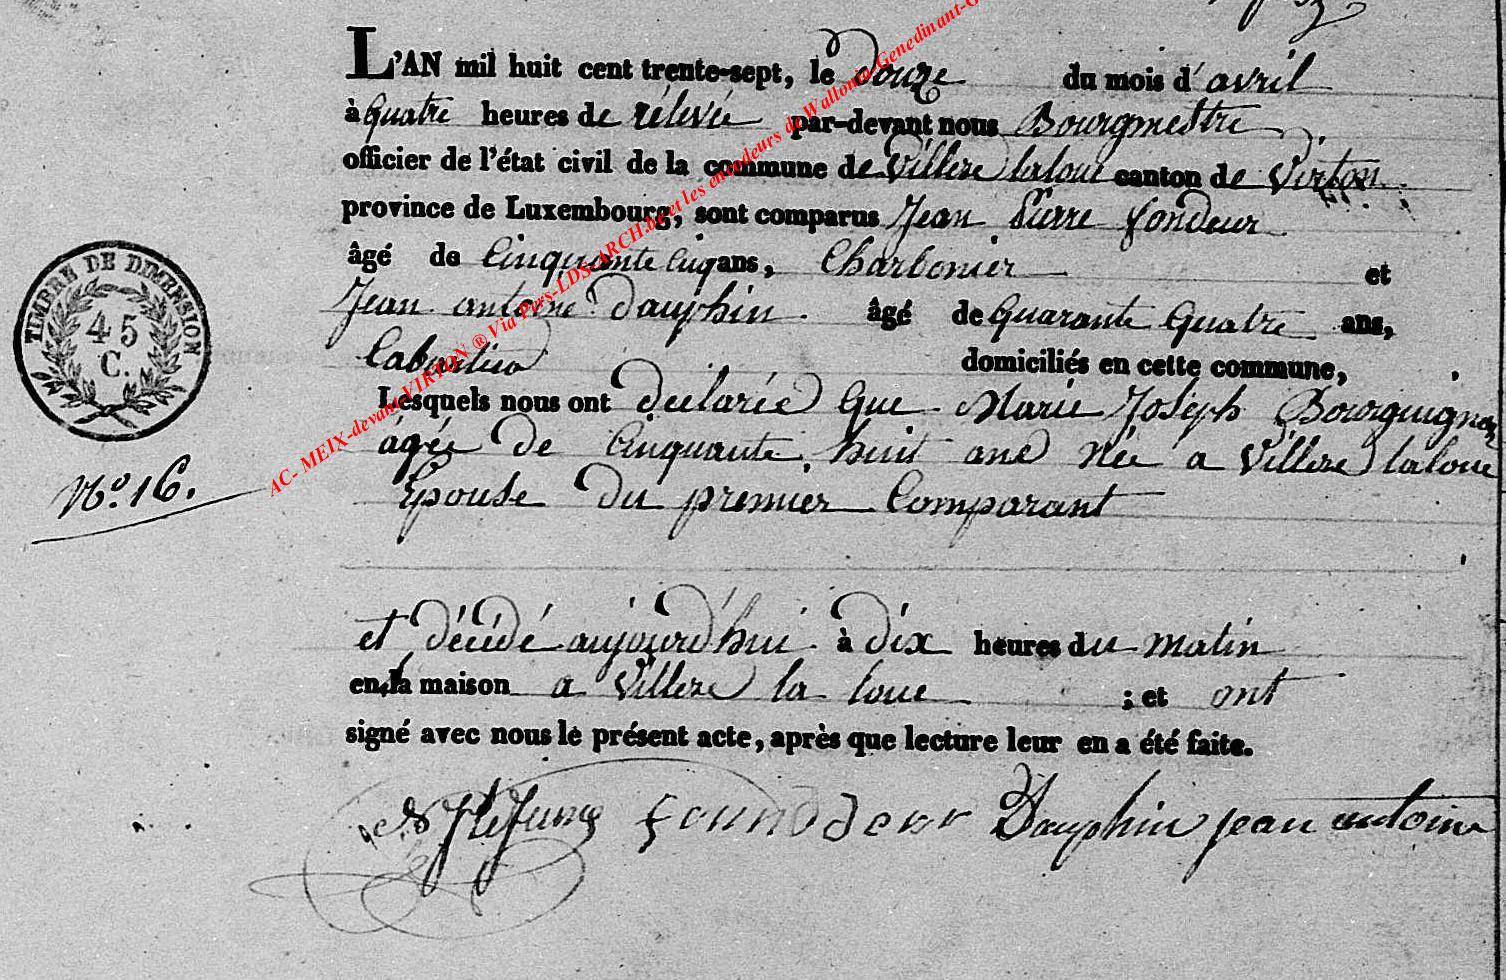 L'AN mil huit cent trente-sept, le douze du mois d'avril
à quatre heures de rélevée par-devant nous Bourgmestre
officier de l'état civil de la commune de Villere laloue canton de Virton
province de Luxembourg, sont comparus Jean Pierre fondeur
âgé de Cinquante Cinq ans, Charbonier et
Jean antoine Dauphin âgé de quarante quatre ans,
Cabartier domiciliés en cette commune,
Lesquels nous ont declarée que Marie Joseph Bourguignon
agée de Cinquante huit ans Née a Villere laloue
Epouse du premier Comparant
et décédé aujourd'hui à dix heures du matin
en la maison a Villere la loue ; et ont
signé avec nous le présent acte, après que lecture leur en a été faite.
foundderr Dauphin jean antoine
TIMBRE DE DIMENSION
45
C.
N.o 16.
AC- MEIX-devant-VIRTON ® Via Pers-LDS-ARCH.be et les encodeurs de Wallonia-Genedinant-G